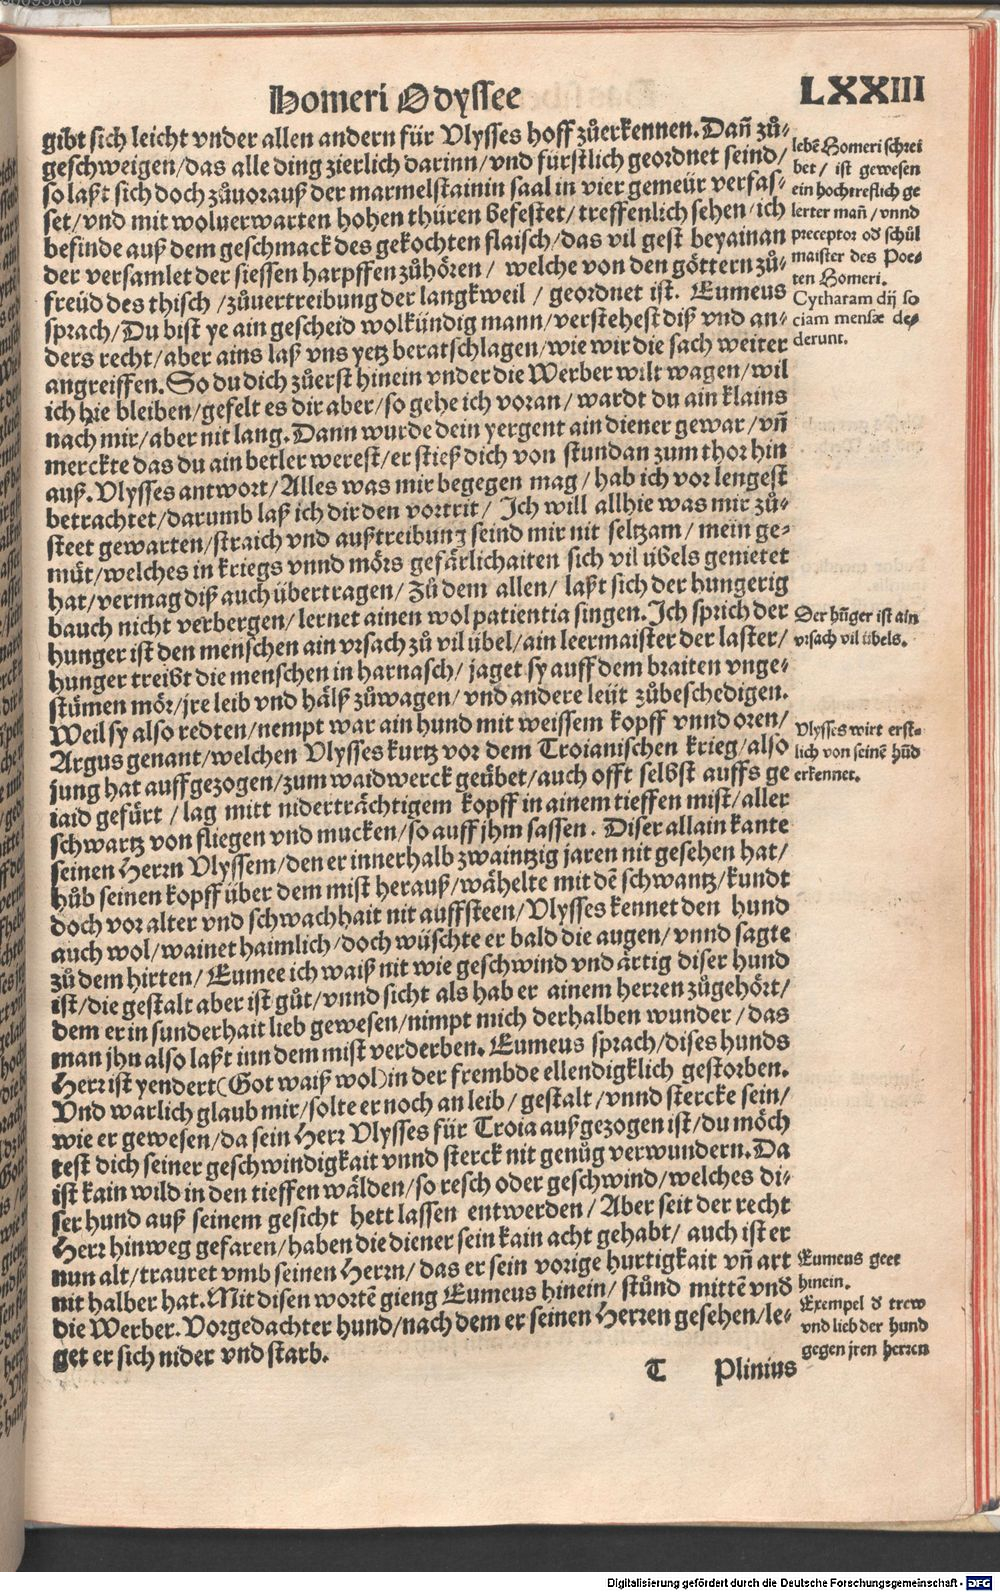 Homeri Odyssee
LXXIII
gibt sich leicht vnder allen andern für Vlysses hoff zůerkennen. Dañ zů⸗
geschweigen/das alle ding zierlich darinn/vnd fürstlich geordnet seind/
so laßt sich doch zůuorauß der marmelstainin saal in vier gemeür verfas⸗
set/vnd mit woluerwarten hohen thüren befestet/treffenlich sehen/ich
befinde auß dem geschmack des gekochten flaisch/das vil gest beyainan
der versamlet der siessen harpffen zůhören/ welche von den göttern zů⸗
freüd des thisch/zůuertreibung der langkweil/ geordnet ist. Eumeus
sprach/Du bist ye ain gescheid wolkündig mann/verstehest diß vnd an⸗
ders recht/aber ains laß vns yetz beratschlagen/wie wir die sach weiter
angreiffen. So du dich zůerst hinein vnder die Werber wilt wagen/wil
ich hie bleiben/gefelt es dir aber/so gehe ich voran/wardt du ain klains
nach mir/aber nit lang. Dann wurde dein yergent ain diener gewar/vñ
merckte das du ain betler werest/er stieß dich von stundan zum thor hin
auß. Vlysses antwort/Alles was mir begegen mag/hab ich vor lengest
betrachtet/darumb laß ich dir den vortrit/ Ich will allhie was mir zů⸗
steet gewarten/straich vnd außtreibung seind mir nit seltzam/mein ge⸗
müt/welches in kriegs vnnd mörs gefärlichaiten sich vil übels genietet
hat/vermag diß auch übertragen/Zů dem allen/ laßt sich der hungerig
bauch nicht verbergen/lernet ainen wol patientia singen. Ich sprich der
hunger ist den menschen ain vrsach zů vil übel/ain leermaister der laster/
hunger treibt die menschen in harnasch/jaget sy auff dem braiten vnge⸗
stümen mör/jre leib vnd hälß zůwagen/vnd andere leüt zůbeschedigen.
Weil sy also redten/nempt war ain hund mit weissem kopff vnnd oren/
Argus genant/welchen Vlysses kurtz vor dem Troianischen krieg/also
jung hat auffgezogen/zum waidwerck geübet/auch offt selbst auffs ge
iaid gefürt/lag mitt niderträchtigem kopff in ainem tieffen mist/aller
schwartz von fliegen vnd mucken/so auff jhm sassen. Diser allain kante
seinen Herrn Vlyssem/den er innerhalb zwaintzig jaren nit gesehen hat/
hůb seinen kopff über dem mist herauß/wähelte mit dē schwantz/kundt
doch vor alter vnd schwachhait nit auffsteen/Vlysses kennet den hund
auch wol/wainet haimlich/doch wüschte er bald die augen/vnnd sagte
zů dem hirten/Eumee ich waiß nit wie geschwind vnd ärtig diser hund
ist/die gestalt aber ist gůt/vnnd sicht als hab er ainem herren zůgehört/
dem er in sunderhait lieb gewesen/nimpt mich derhalben wunder/das
man jhn also laßt inn dem mist verderben. Eumeus sprach/dises hunds
Herr ist yendert(Got waiß wol)in der frembde ellendigklich gestorben.
Vnd warlich glaub mir/solte er noch an leib/gestalt/vnnd stercke sein/
wie er gewesen/da sein Herr Vlysses für Troia außgezogen ist/du möch
test dich seiner geschwindigkait vnnd sterck nit genůg verwundern. Da
ist kain wild in den tieffen wälden/so resch oder geschwind/welches di⸗
ser hund auß seinem gesicht hett lassen entwerden/Aber seit der recht
Herr hinweg gefaren/haben die diener sein kain acht gehabt/auch ist er
nun alt/trauret vmb seinen Herrn/das er sein vorige hurtigkait vñ art
nit halber hat. Mit disen wortē gieng Eumeus hinein/stůnd mittē vnd̕
die Werber. Vorgedachter hund/nach dem er seinen Herren gesehen/le⸗
get er sich nider vnd starb.
T Plinius
lebē Homeri schrei
bet/ ist gewesen
ein hochtreflich ge
lerter mañ/vnnd
preceptor od̕ schůl
maister des Poe⸗
ten Homeri.
Cytharam dij so
ciam mensæ de⸗
derunt.
Der hũger ist ain
vrsach vil übels.
Vlysses wirt erst⸗
lich von seinē hũd
erkennet.
Eumeus geet
hinein.
Exempel d̕ trew
vnd lieb der hund
gegen jren herren
Digitalisierung gefördert durch die Deutsche Forschungsgemeinschaft - DFG